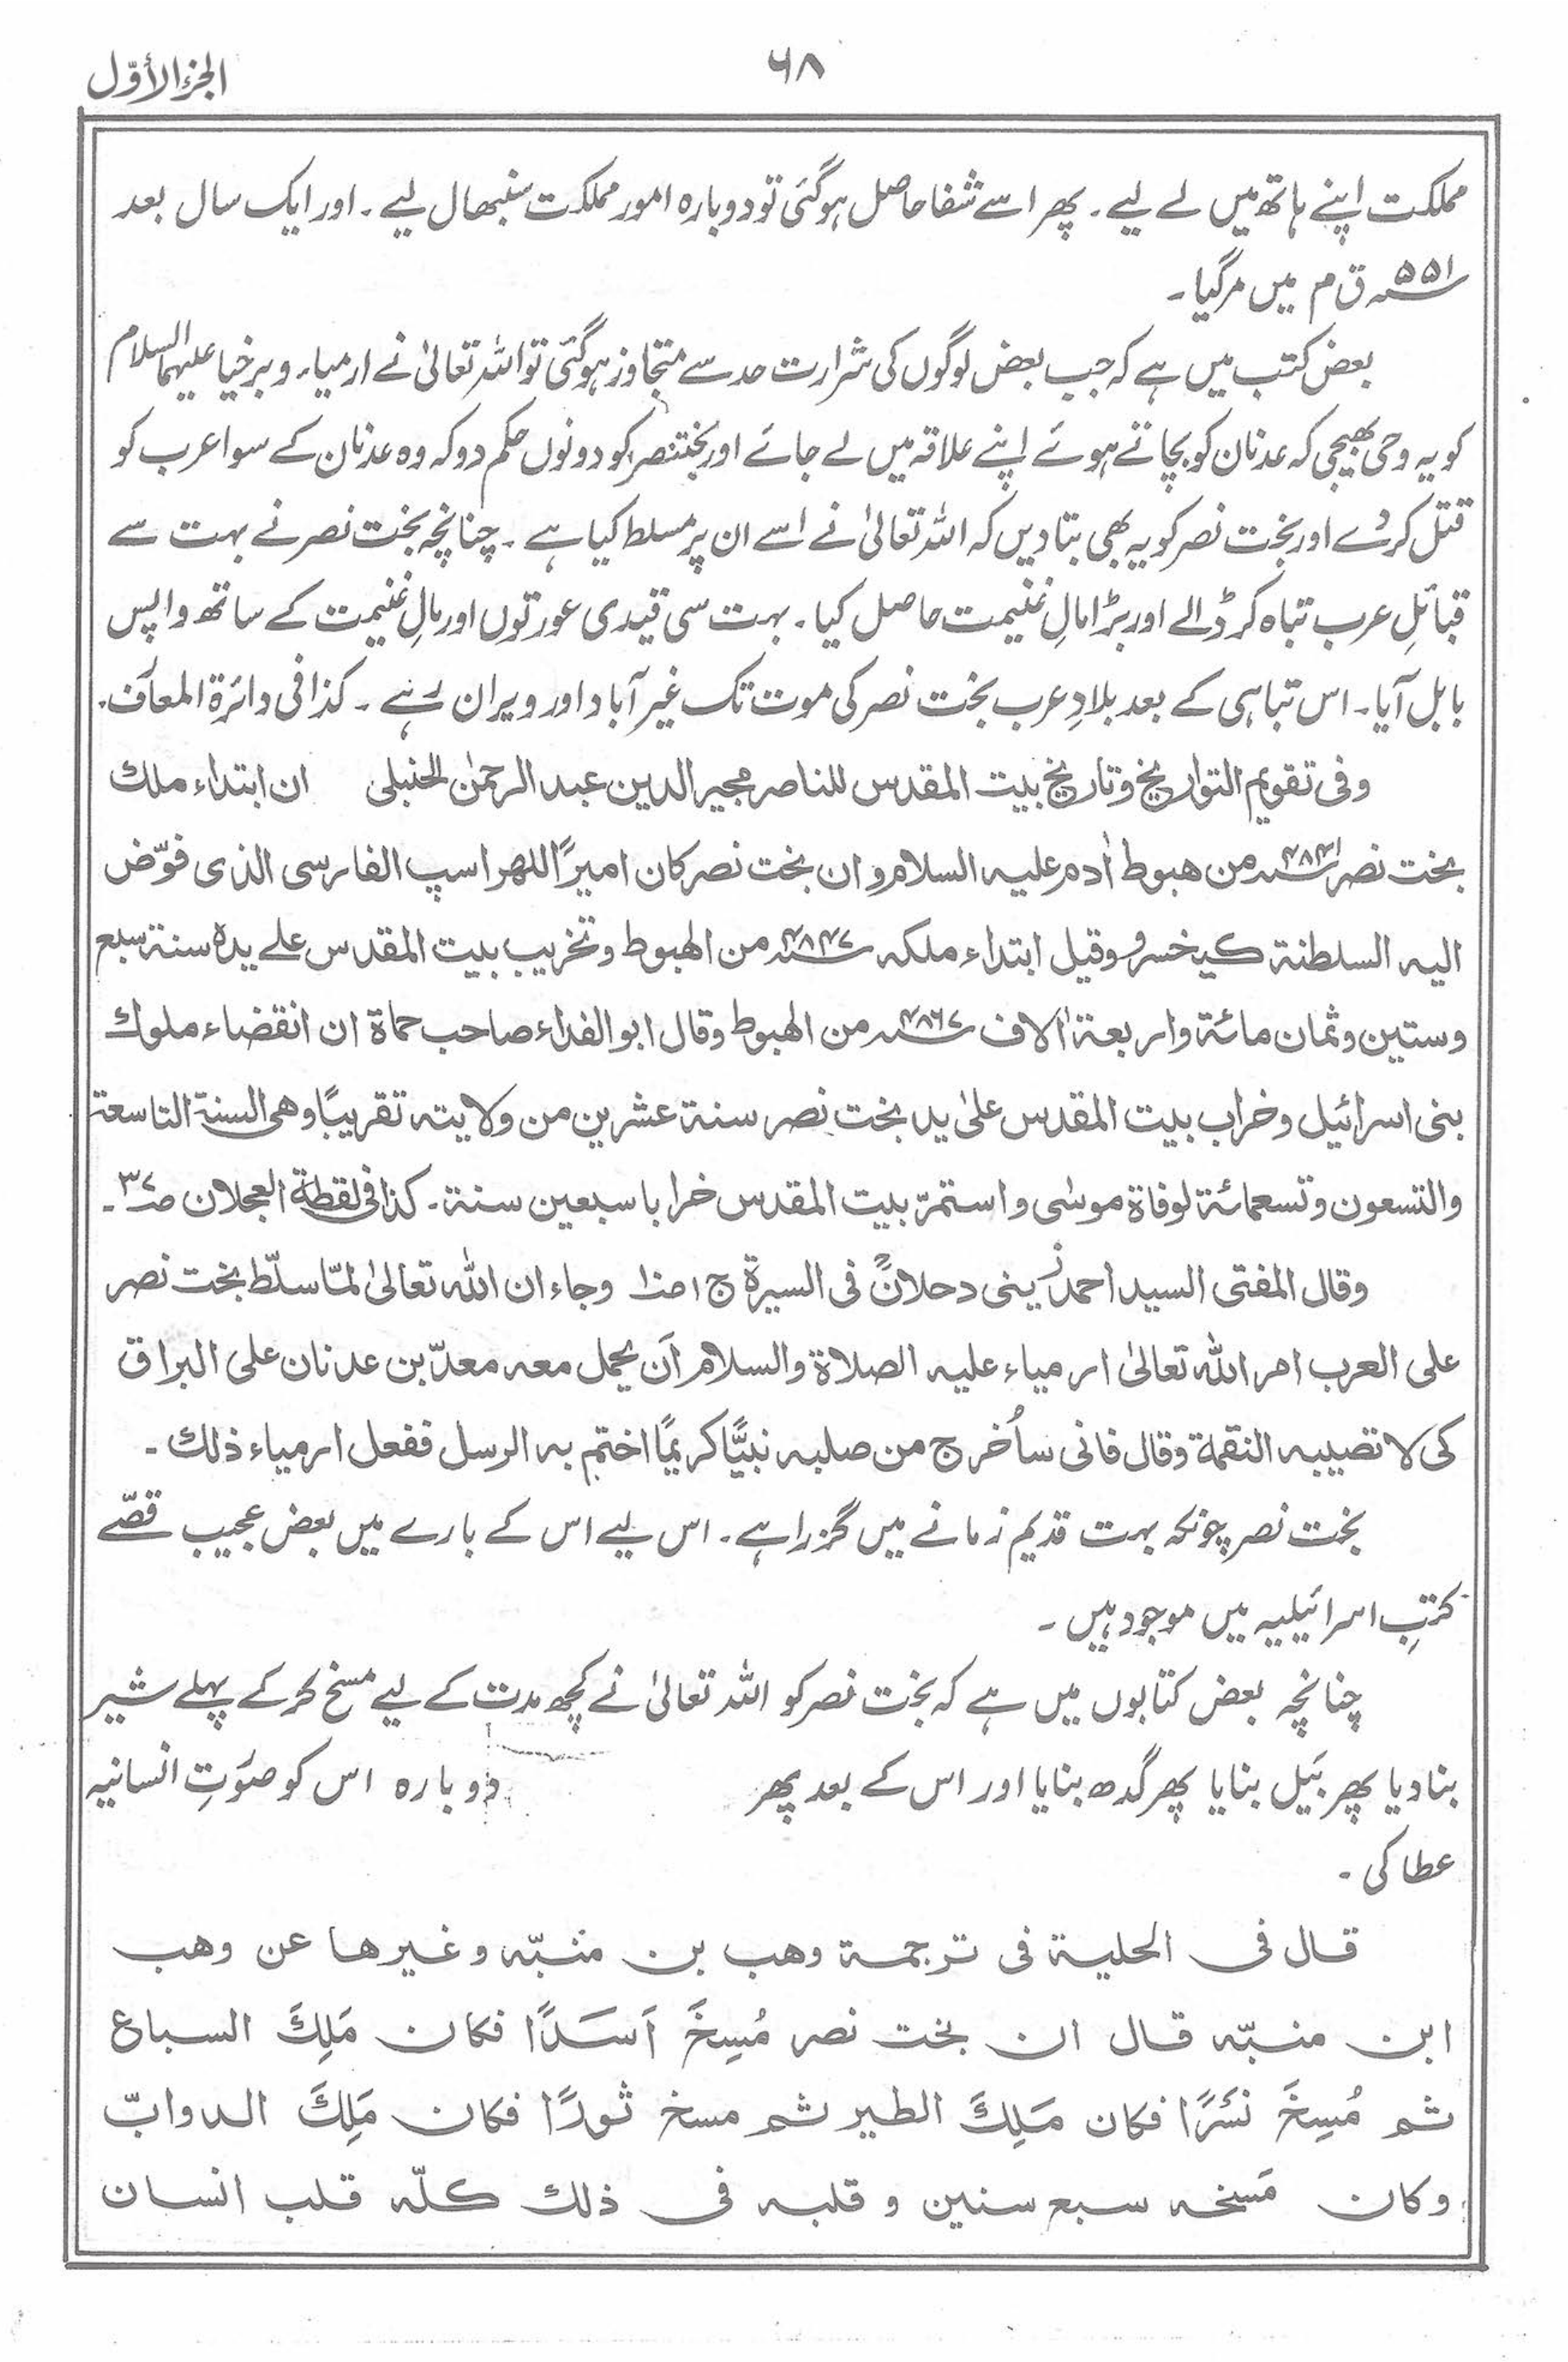 الجزء الأوّل
۶۸
مملکت اپنے ہاتھ میں لے لیے۔ پھر اسے شفا حاصل ہوگئی تو دوبارہ امور مملکت سنبھال لیے۔ اور ایک سال بعد
۵۵۱ ق م میں مرگیا۔
بعض کتب میں ہے کہ جب بعض لوگوں کی شرارت حد سے متجاوز ہوگئی تو اللہ تعالیٰ نے ارمیاء و برخیا علیہما السلام
کو یہ وحی بھیجی کہ عدنان کو بچاتے ہوئے اپنے علاقہ میں لے جائے اور بختنصر کو دونوں حکم دو کہ وہ عدنان کے سوا عرب کو
قتل کردے اور بخت نصر کو یہ بھی بتادیں کہ اللہ تعالیٰ نے اسے ان پر مسلط کیا ہے۔ چنانچہ بخت نصر نے بہت سے
قبائلِ عرب تباہ کر ڈالے اور بڑا مالِ غنیمت حاصل کیا۔ بہت سی قیدی عورتوں اور مالِ غنیمت کے ساتھ واپس
بابل آیا۔ اس تباہی کے بعد بلادِ عرب بخت نصر کی موت تک غیر آباد اور ویران رہے۔ کذا فی دائرۃ المعارف۔
وفی تقویم التواریخ وتاریخ بیت المقدس للناصر مجیر الدین عبد الرحمٰن الحنبلی ان ابتداء ملك
بخت نصر ۴۸۴۱ من هبوط اٰدم علیه السلام و ان بخت نصر کان امیرًا للهراسپ الفارسی الذی فوّض
الیه السلطنة کیخسرو وقیل ابتداء ملکه ۴۸۴۷ من الهبوط وتخریب بیت المقدس علے یده سنة سبع
وستین وثمان مائة واربعة اٰلاف ۴۸۶۷ من الهبوط وقال ابو الفداء صاحب حماة ان انقضاء ملوك
بنی اسرائیل وخراب بیت المقدس علیٰ ید بخت نصر سنة عشرین من ولایته تقریبًا وهی السنة التاسعة
والتسعون وتسعمائة لوفاة موسٰی واستمرّ بیت المقدس خرابا سبعین سنة۔ کذا فی لقطة العجلان ص۳۷۔
وقال المفتی السید احمد زینی دحلانؒ فی السیرة ج۱ ص۱۰ وجاء ان الله تعالیٰ لمّا سلّط بخت نصر
علی العرب امر الله تعالیٰ ارمیاء علیه الصلاة والسلام اَن یحمل معه معدّ بن عدنان علی البراق
کی لا تصیبه النقمة وقال فانی ساُخرج من صلبه نبیًّا کریمًا اختم به الرسل ففعل ارمیاء ذلك۔
بخت نصر چونکہ بہت قدیم زمانے میں گزرا ہے۔ اس لیے اس کے بارے میں بعض عجیب قصّے
کتبِ اسرائیلیہ میں موجود ہیں۔
چنانچہ بعض کتابوں میں ہے کہ بخت نصر کو اللہ تعالیٰ نے کچھ مدت کے لیے مسخ کرکے پہلے شیر
بنادیا پھر بَیل بنایا پھر گدھ بنایا اور اس کے بعد پھر دوبارہ اس کو صُوَرتِ انسانیہ
عطا کی۔
قال فی الحلیة فی ترجمة وهب بن منبّه وغیرها عن وهب
ابن منبّه قال ان بخت نصر مُسِخَ اَسَدًا فکان مَلِكَ السباع
ثم مُسِخَ نَسْرًا فکان مَلِكَ الطیر ثم مسخ ثَورًا فکان مَلِكَ الدوابّ
وکان مَسخه سبع سنین و قلبه فی ذلك کلّه قلب انسان